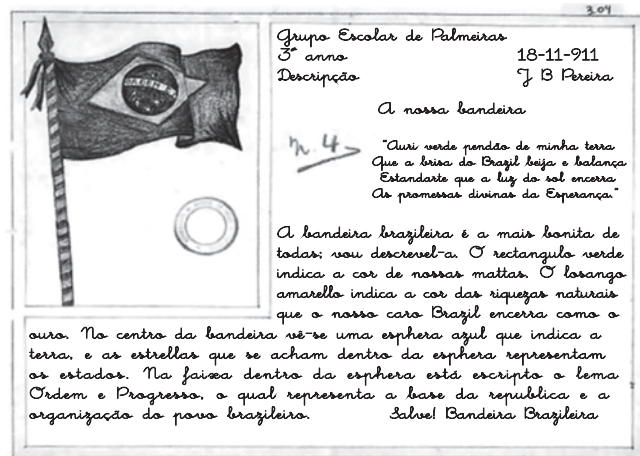 3.04
Grupo Escolar de Palmeiras
3º anno 18-11-911
Descripção J B Pereira
A nossa bandeira
n. 4
"Auri verde pendão de minha terra
Que a brisa do Brazil beija e balança
Estandarte que a luz do sol encerra
As promessas divinas da Esperança."
A bandeira brazileira é a mais bonita de
todas; vou descrevel-a. O rectangulo verde
indica a cor de nossas mattas. O losango
amarello indica a cor das riquezas naturais
que o nosso caro Brazil encerra como o
ouro. No centro da bandeira vê-se uma esphera azul que indica a
terra, e as estrellas que se acham dentro da esphera representam
os estados. Na faixa dentro da esphera está escripto o lema
Ordem e Progresso, o qual representa a base da republica e a
organização do povo brazileiro. Salve! Bandeira Brazileira